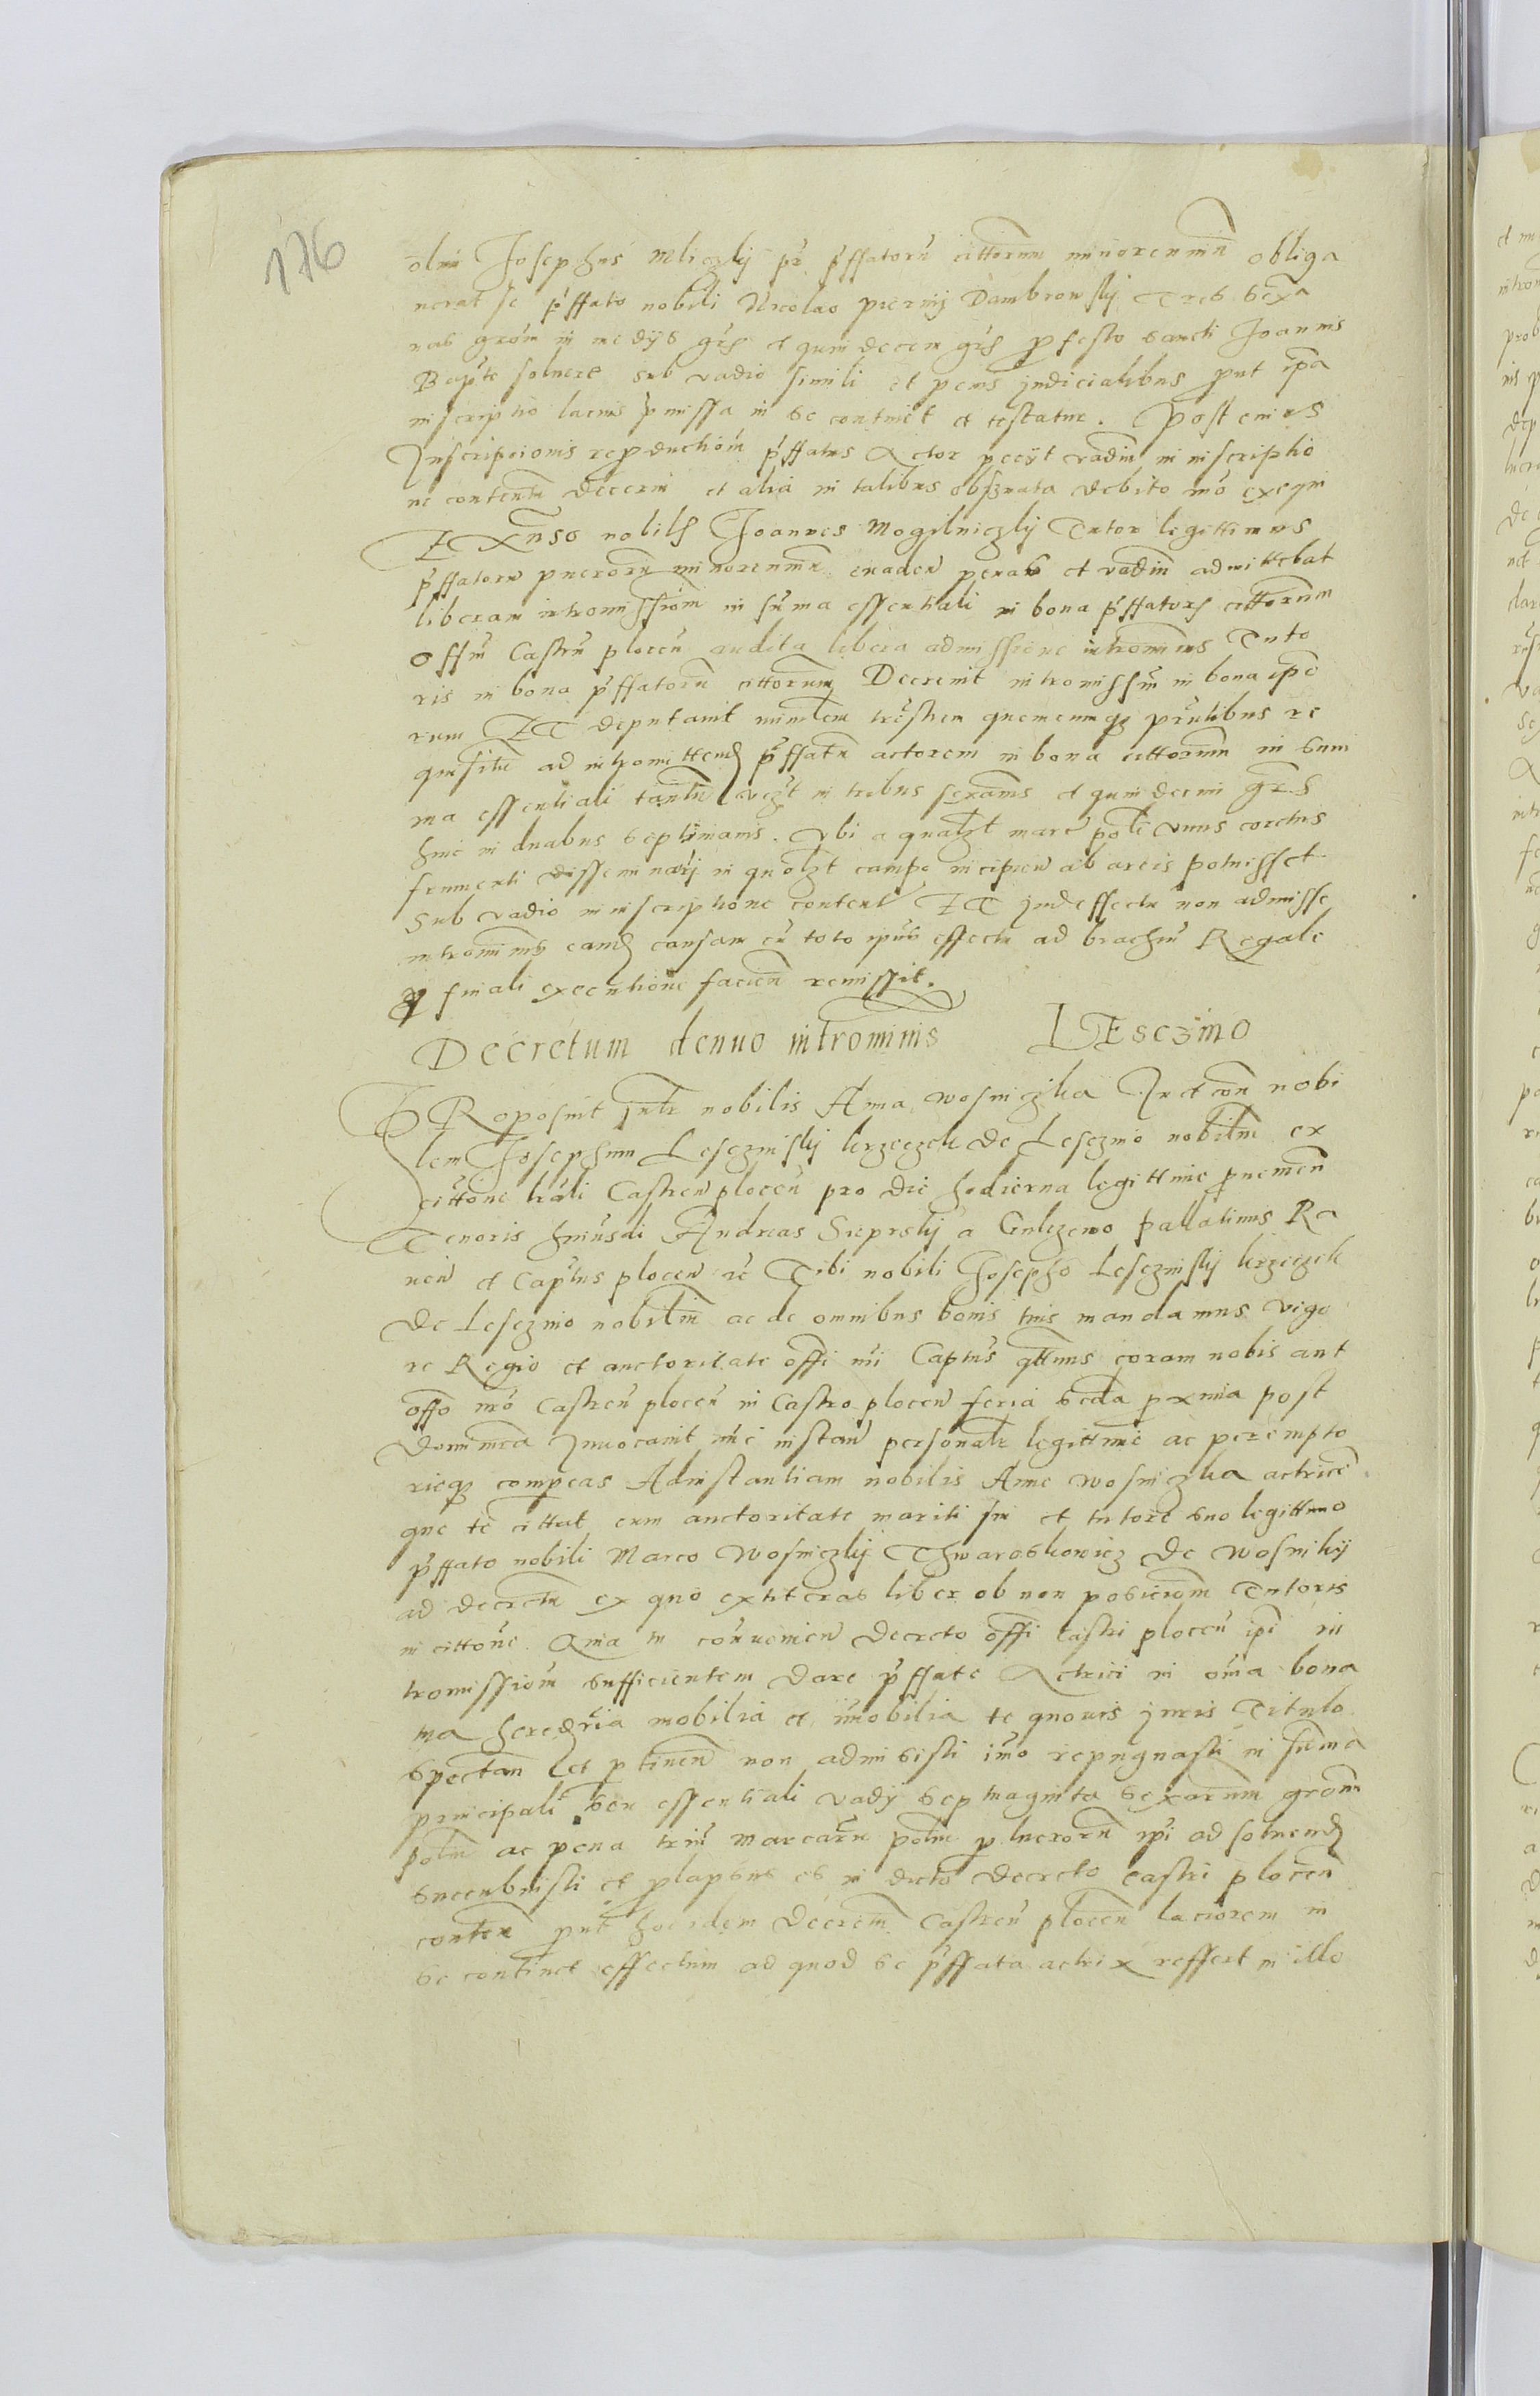 176
olim Josephus Mliczkij pr pffatorũ cittorum minorennum obliga
nerat se pffato nobili Nicolao piernij Dambrowskij Tres sexa
nas grom in medijs grs et quindecem grs p festo sancti Joannis
Bapte soluere sub vadio simili et penis judicialibus put ipa
inscriptio lacius pmissa in se continet et testatur. Post cuius
Inscripcionis reproductiom pffatus Actor peciit vadiũ in inscriptio
ne contentũ decerni et alia in talibus obseruata debito mo exequi
Ex aduso nobils Joannes Mogilniczkij Tutor legittimus
pffatoru puerorũ minorennium euaden penas et vadiũ admittebat
liberam intromissiom in suma essentiali in bona pffators cittorum
Offiũ Castrũ plocen audita libera admissione intromiõis Tuto
ris in bona pffatorũ cittorum Decreuit intromissiõ in bona ipo
rum ET deputauit minilem trestrem quemcumq pntibus re
quisitũ ad intromittend pffatũ actorem in bona cittorum in sum
ma essentiali tantũ vezt in tribus sexanis et quindecim grs
hinc in duabus septimanis. Vbi a qualzt marc pole vnus coretus
frumenti disseminarj in quolzt campo incipien ab areis potuisset
Sub vadio in inscriptione content ET jndeffectu non admisse
intromiõis eand causam cũ toto ipius effectu ad brachiũ Regale
p finali executione facien remissit.
Decretum denuo intromiõis LEsczino
PRoposuit jnte nobilis Anna wosniczka In et con nobi
lem Josephum Lesczinskij krzeczek de Lesczino nobilem ex
cittone trali Castren plocen pro die hodierna legittime pnemen
Tenoris huiusdi Andreas Sieprskij a Gulczewo pallatinus Ra
uen et Captus plocen re Tibi nobili Josepho Lesczinskij krzeczek
de Lesczino nobilem ac de omnibus bonis tuis mandamus vigo
re Regio et auctoritate offi nri Captus qttenus coram nobis aut
offo nro Castren plocen in Castro plocen feria secda pxmia post
dominica Jnuocauit nuc instan personale legittime ac perempto
rieq compeas Adinstantiam nobilis Anne wosniczka actrice
que te cittat cum auctoritate mariti sui et tutore suo legittimo
pffato nobili Marco Wosniczkij Thwaroskowicz de wosnikij
ad decretũ ex quo extiteras liber ob non posiciom Tutoris
in cittone Quia tu conuenien decreto offi castri plocen ipi in
tromissiom sufficientem dare pffate Actrici in oma bona
tua heredria mobilia et imobilia te quouis juris Titulo
spectan et ptinen non admisisti imo repugnasti in suma
principali seu essentiali vadij septuaginta sexarum grom
polm ac pena triũ marcarũ polm p lucrorũ ipi ad soluend
sucubuisti et plapsus es in dicto decreto castri plocen
conten put hoc idem decrem Castren plocen laciorem in
se continet effectum ad quod se pffata actrix reffert in illo